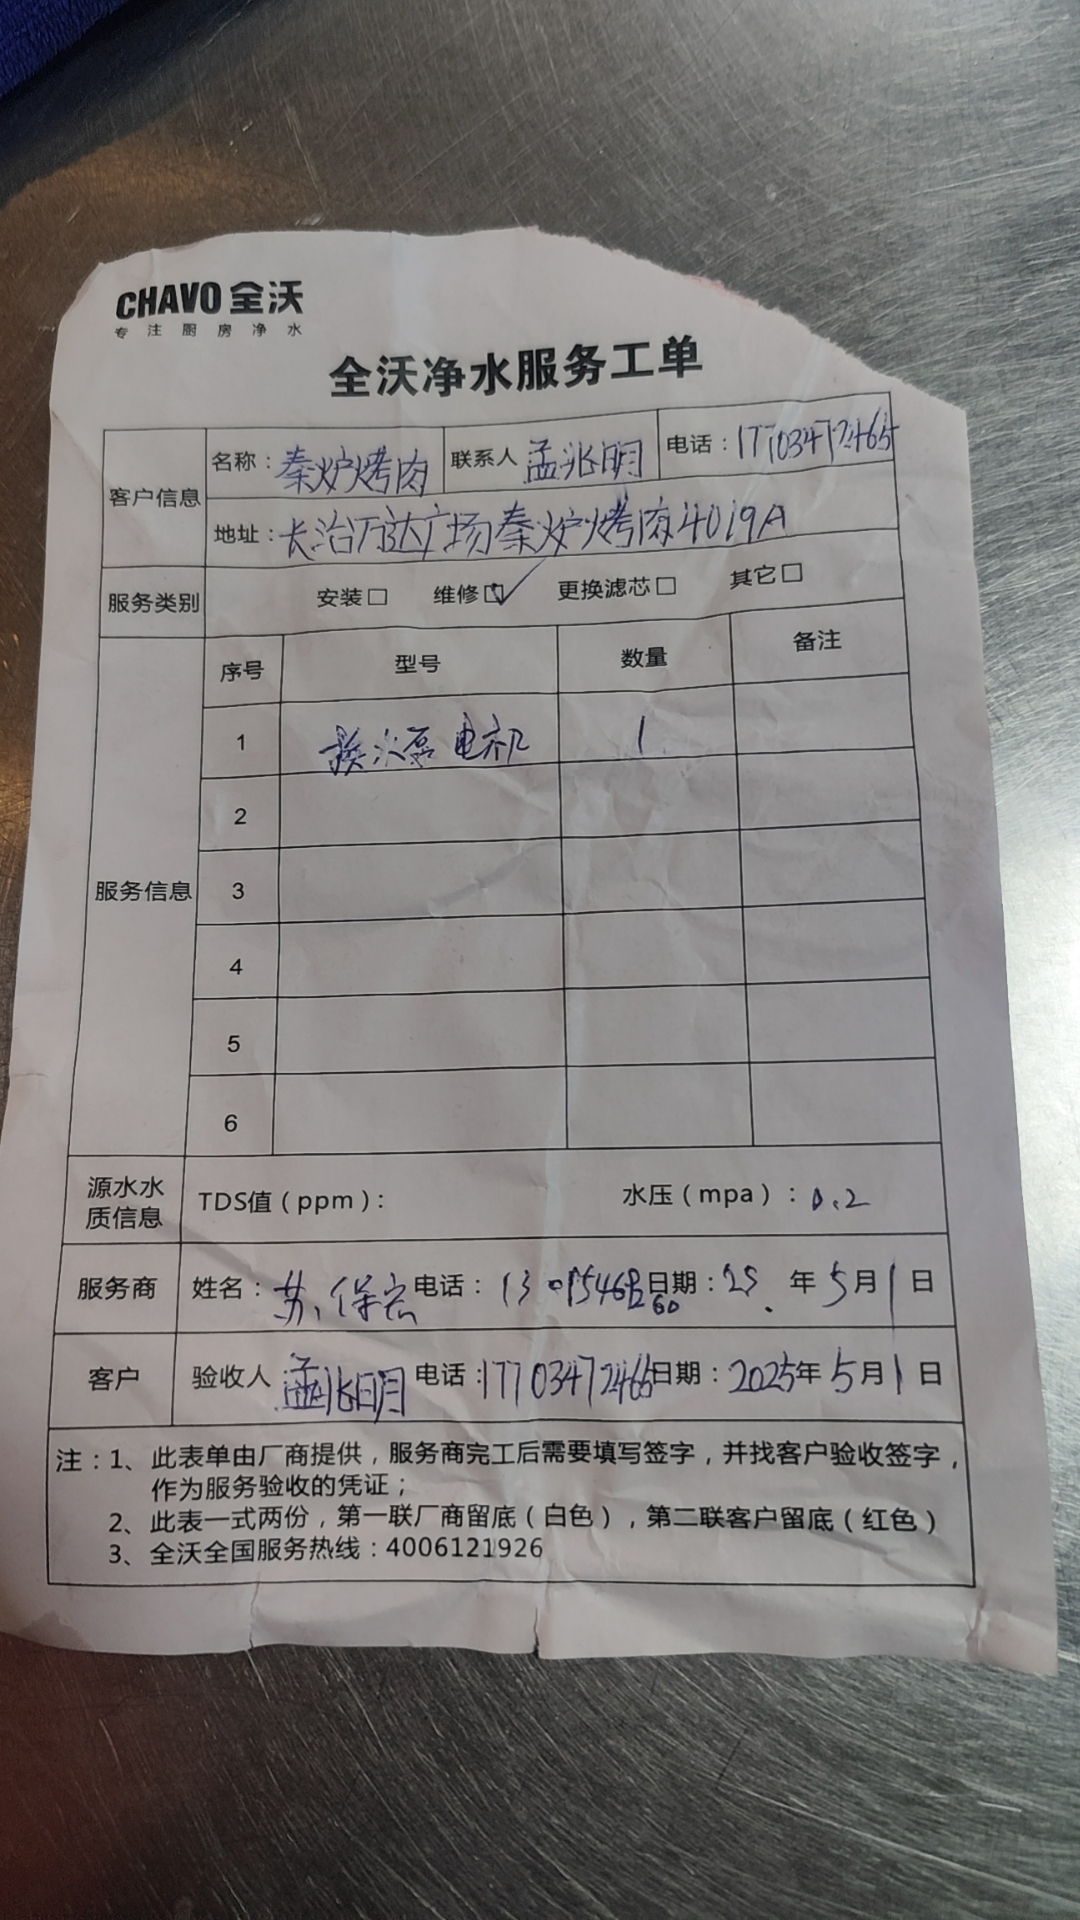 CHAVO 全沃
专注厨房净水
全沃净水服务工单
客户信息 名称：秦炉烤肉 联系人 孟兆明 电话：17703472465
地址：长治万达广场秦炉烤肉4019A
服务类别 安装□ 维修☑ 更换滤芯□ 其它□
服务信息 序号 型号 数量 备注
1 换水泵电机 1
2
3
4
5
6
源水水质信息 TDS值（ppm）： 水压（mpa）：0.2
服务商 姓名：苏保宏 电话： 日期：25年5月1日
客户 验收人 孟兆明 电话：17703472465 日期：2025年5月1日
注：1、此表单由厂商提供，服务商完工后需要填写签字，并找客户验收签字，
作为服务验收的凭证；
2、此表一式两份，第一联厂商留底（白色），第二联客户留底（红色）
3、全沃全国服务热线：4006121926